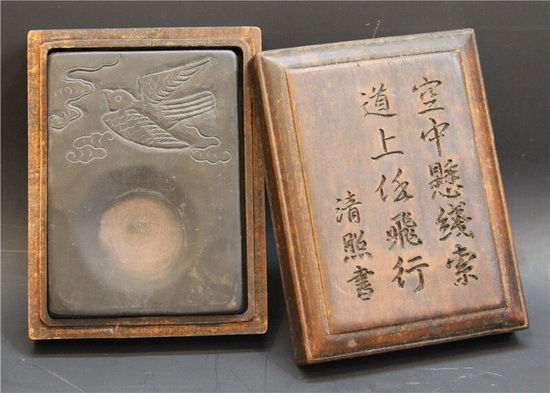 空中懸线索
道上任飛行
清照書